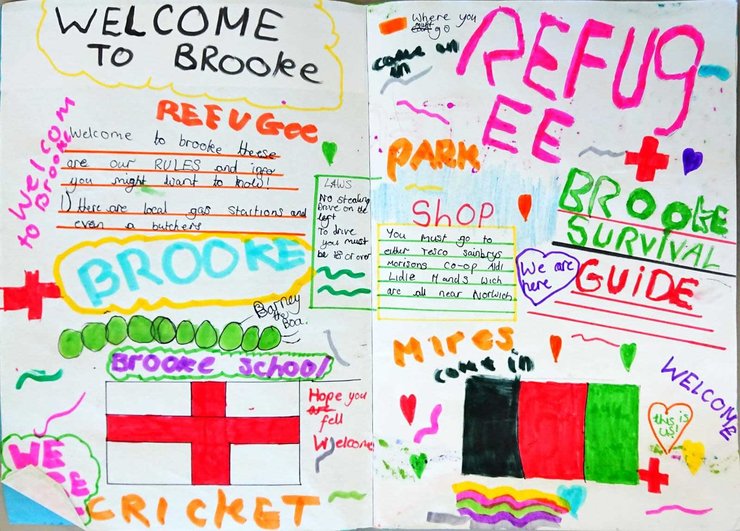 WELCOME
TO BROOKe
REFUGee
to Welcom
Brooke
Welcome to brooke theese
are our RULES and info
you might want to know!
1) there are local gas stactions and
even a butchers
LAWS
No stealing
Drive on the
left
To drive
you must
be 18 or over
BROOKE
Barney
the
Boa.
Brooke School
Hope you
fell
Welcome
WE
CRICKET
Where you
must
go
come on
in
REFUG
EE
PARK
BROOKE
SURVIVAL
GUIDE
SHOP
You Must go to
either Tesco sainbrys
morisons Co-op Aldi
Lidle Mand S wich
are all near Norwich
We are
here
Mires
come in
WELCOME
this is
us!